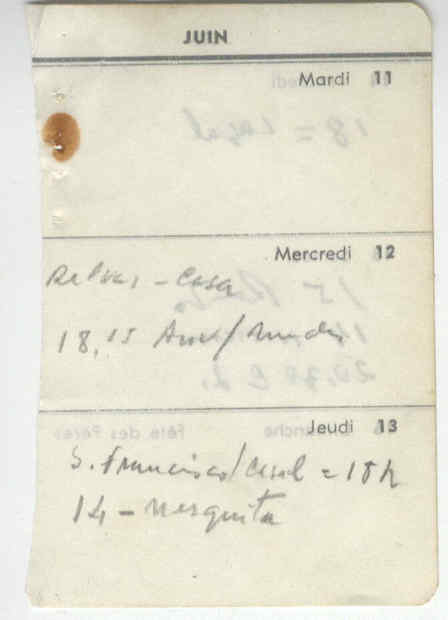 JUIN
Mardi 11
Mercredi 12
Relvas - Casa
18,15
Jeudi 13
S. Francisco/Casal = 18h
14 - Mesquita